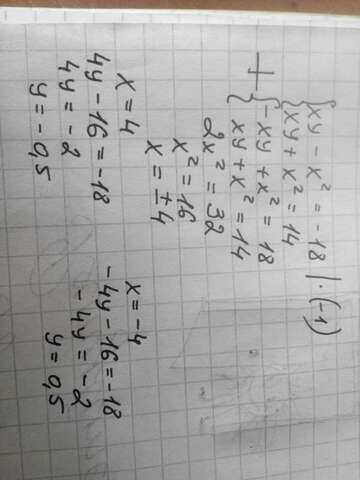 {xy - x² = -18 | · (-1)
{xy + x² = 14
+ {-xy + x² = 18
{xy + x² = 14
2x² = 32
x² = 16
x = ±4
x = 4
4y - 16 = -18
4y = -2
y = -0,5
x = -4
-4y - 16 = -18
-4y = -2
y = 0,5